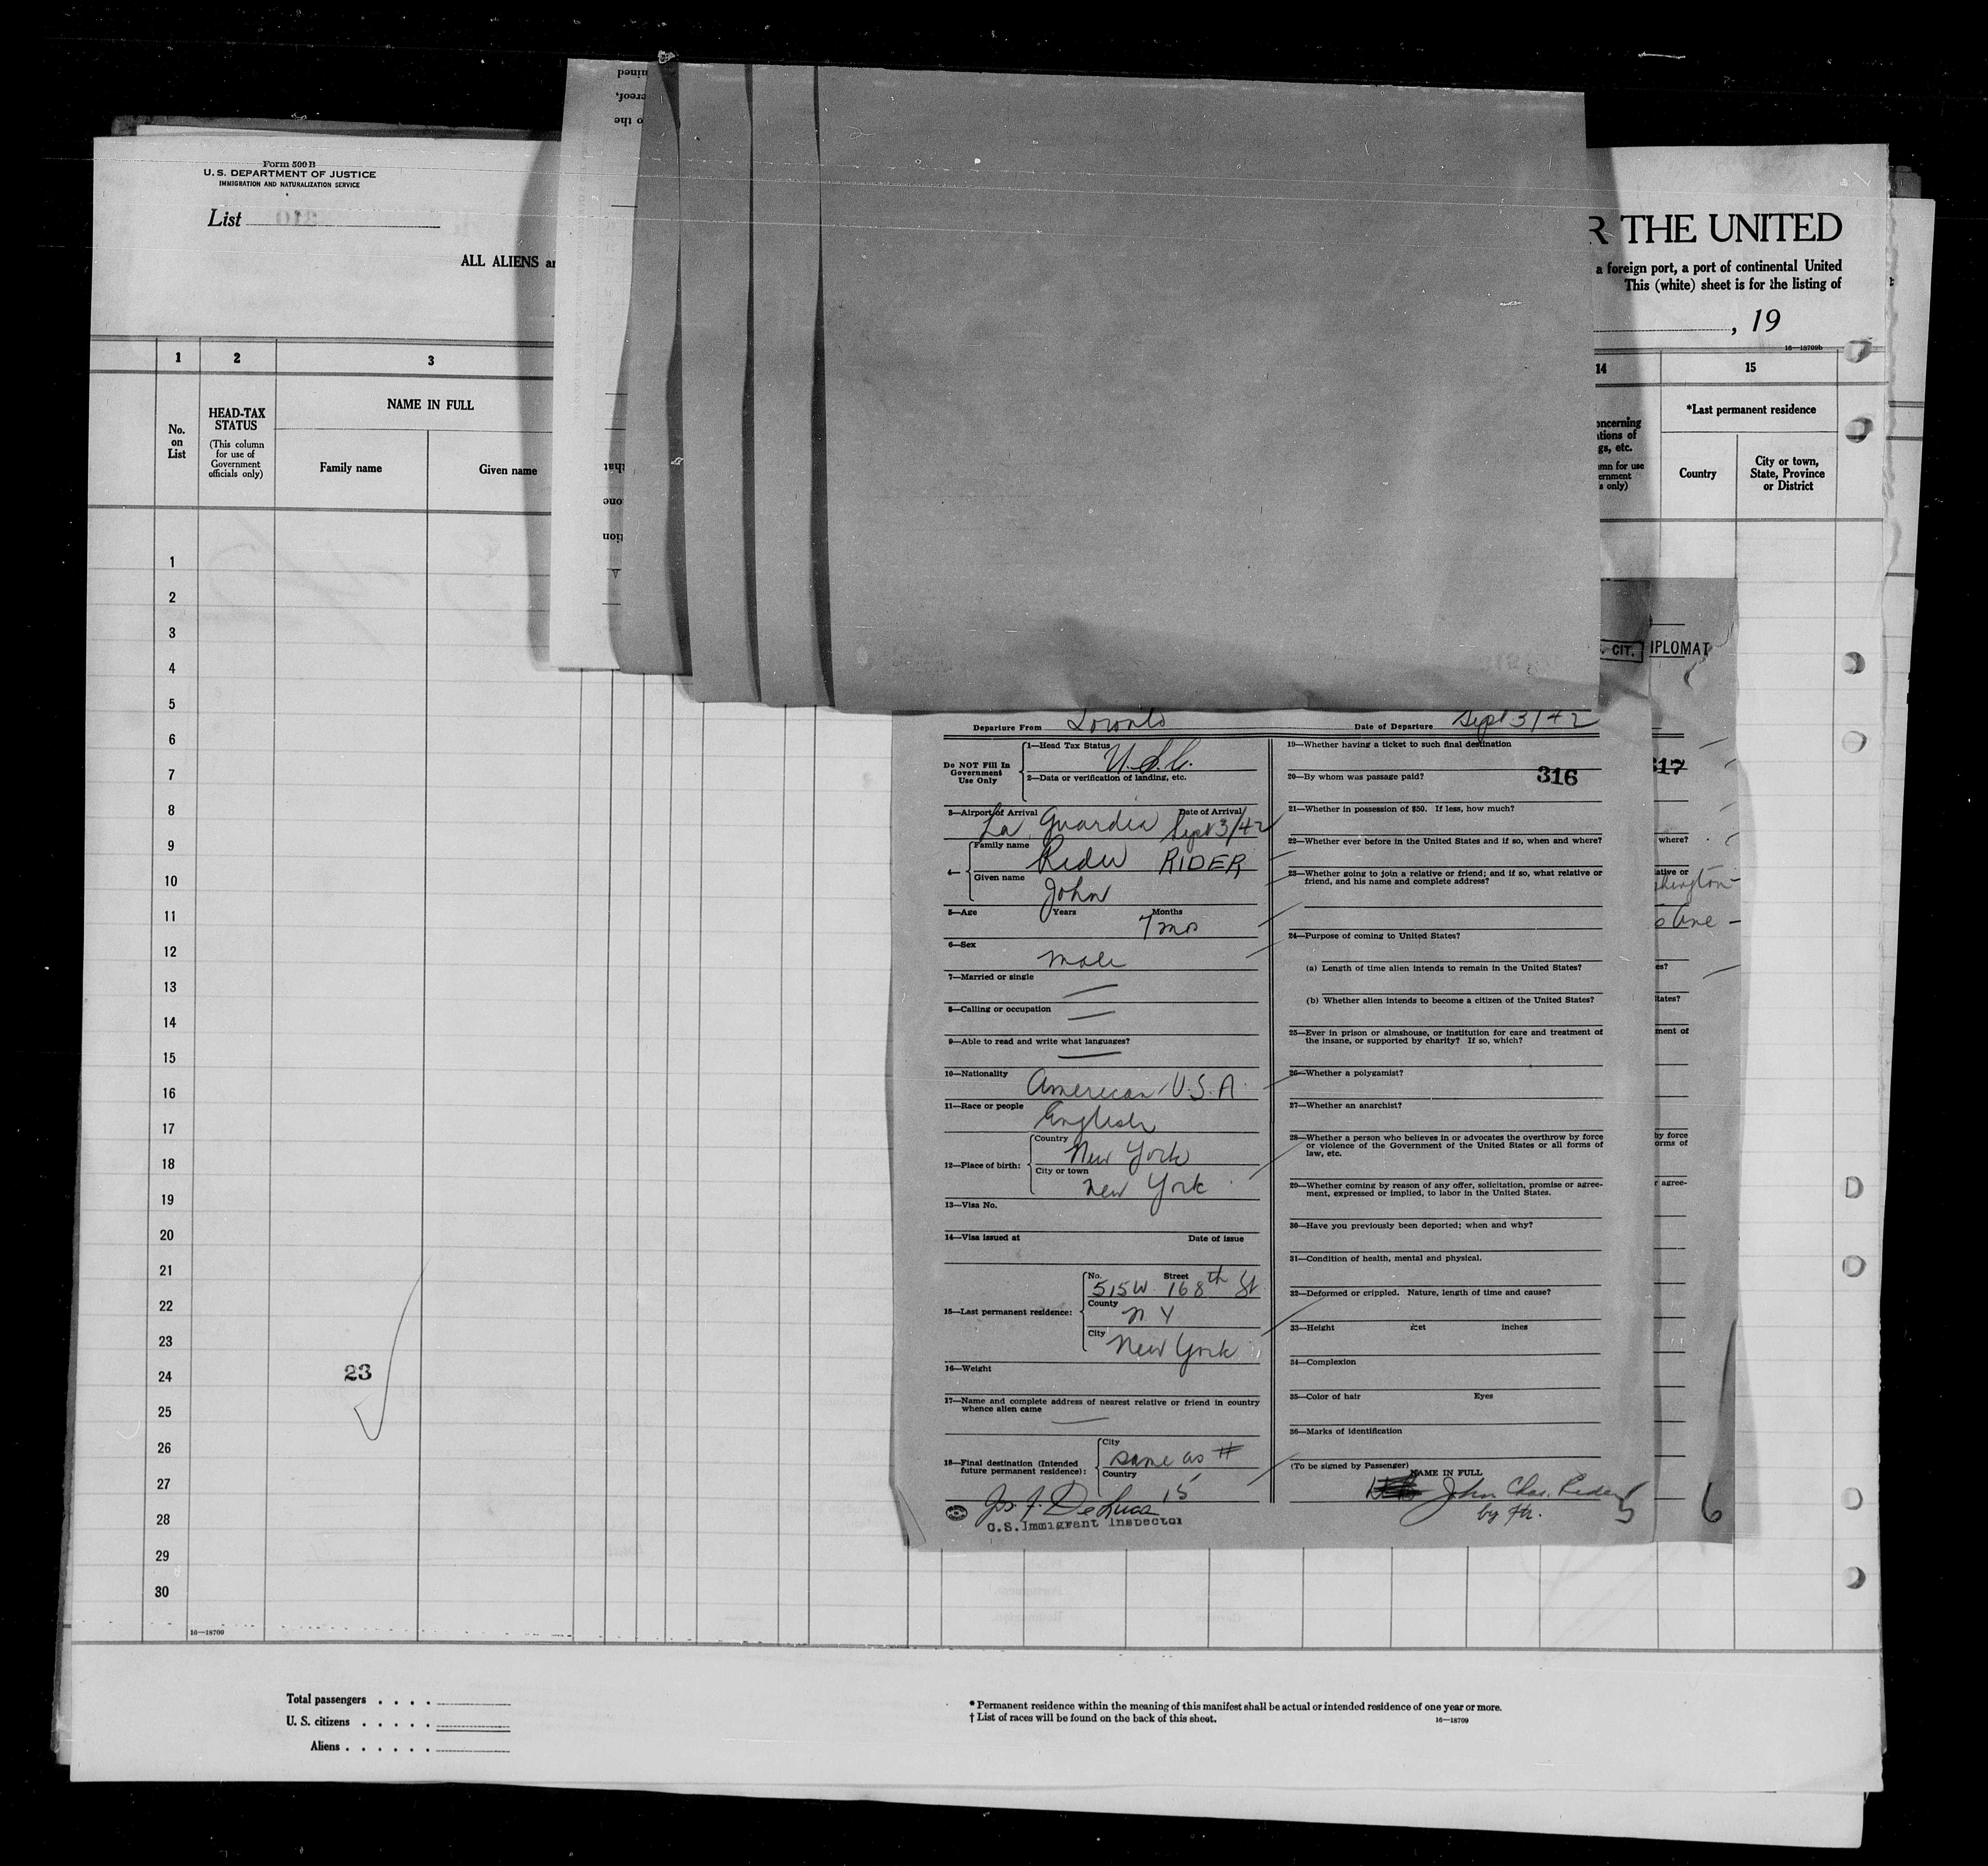 Form 500 B
U. S. DEPARTMENT OF JUSTICE
IMMIGRATION AND NATURALIZATION SERVICE
List
ALL ALIENS
THE UNITED
a foreign port, a port of continental United
This (white) sheet is for the listing of
, 19
16—18709b
1 2 3 14 15
No. on List
HEAD-TAX STATUS
(This column for use of Government officials only)
NAME IN FULL
Family name
Given name
*Last permanent residence
Country
City or town, State, Province or District
1
2
3
4
5
6
7
8
9
10
11
12
13
14
15
16
17
18
19
20
21
22
23
24
25
26
27
28
29
30
23
16—18709
Total passengers . . . .
U. S. citizens . . . . .
Aliens . . . . . .
* Permanent residence within the meaning of this manifest shall be actual or intended residence of one year or more.
† List of races will be found on the back of this sheet.
16—18709
CIT.
Departure From Toronto Date of Departure Sept 3/42
Do NOT Fill In Government Use Only
1—Head Tax Status U.S.C.
2—Data or verification of landing, etc.
3—Airport of Arrival La Guardia Date of Arrival Sept 3/42
4— Family name Rider RIDER
Given name John
5—Age Years Months 7 mos
6—Sex male
7—Married or single —
8—Calling or occupation —
9—Able to read and write what languages? —
10—Nationality American U.S.A.
11—Race or people English
12—Place of birth: Country New York
City or town New York
13—Visa No.
14—Visa issued at Date of issue
15—Last permanent residence: No. Street 515 W 168th St
County N Y
City New York
16—Weight
17—Name and complete address of nearest relative or friend in country whence alien came —
18—Final destination (Intended future permanent residence): City same as #
Country 15
Jos. J. DeLuca
U.S. Immigrant Inspector
19—Whether having a ticket to such final destination
316
20—By whom was passage paid?
21—Whether in possession of $50. If less, how much?
22—Whether ever before in the United States and if so, when and where?
23—Whether going to join a relative or friend; and if so, what relative or friend, and his name and complete address?
24—Purpose of coming to United States?
(a) Length of time alien intends to remain in the United States?
(b) Whether alien intends to become a citizen of the United States?
25—Ever in prison or almshouse, or institution for care and treatment of the insane, or supported by charity? If so, which?
26—Whether a polygamist?
27—Whether an anarchist?
28—Whether a person who believes in or advocates the overthrow by force or violence of the Government of the United States or all forms of law, etc.
29—Whether coming by reason of any offer, solicitation, promise or agreement, expressed or implied, to labor in the United States.
30—Have you previously been deported; when and why?
31—Condition of health, mental and physical.
32—Deformed or crippled. Nature, length of time and cause?
33—Height feet inches
34—Complexion
35—Color of hair Eyes
36—Marks of identification
(To be signed by Passenger) NAME IN FULL
John Chas. Rider
by Fr.
5
317
where?
6